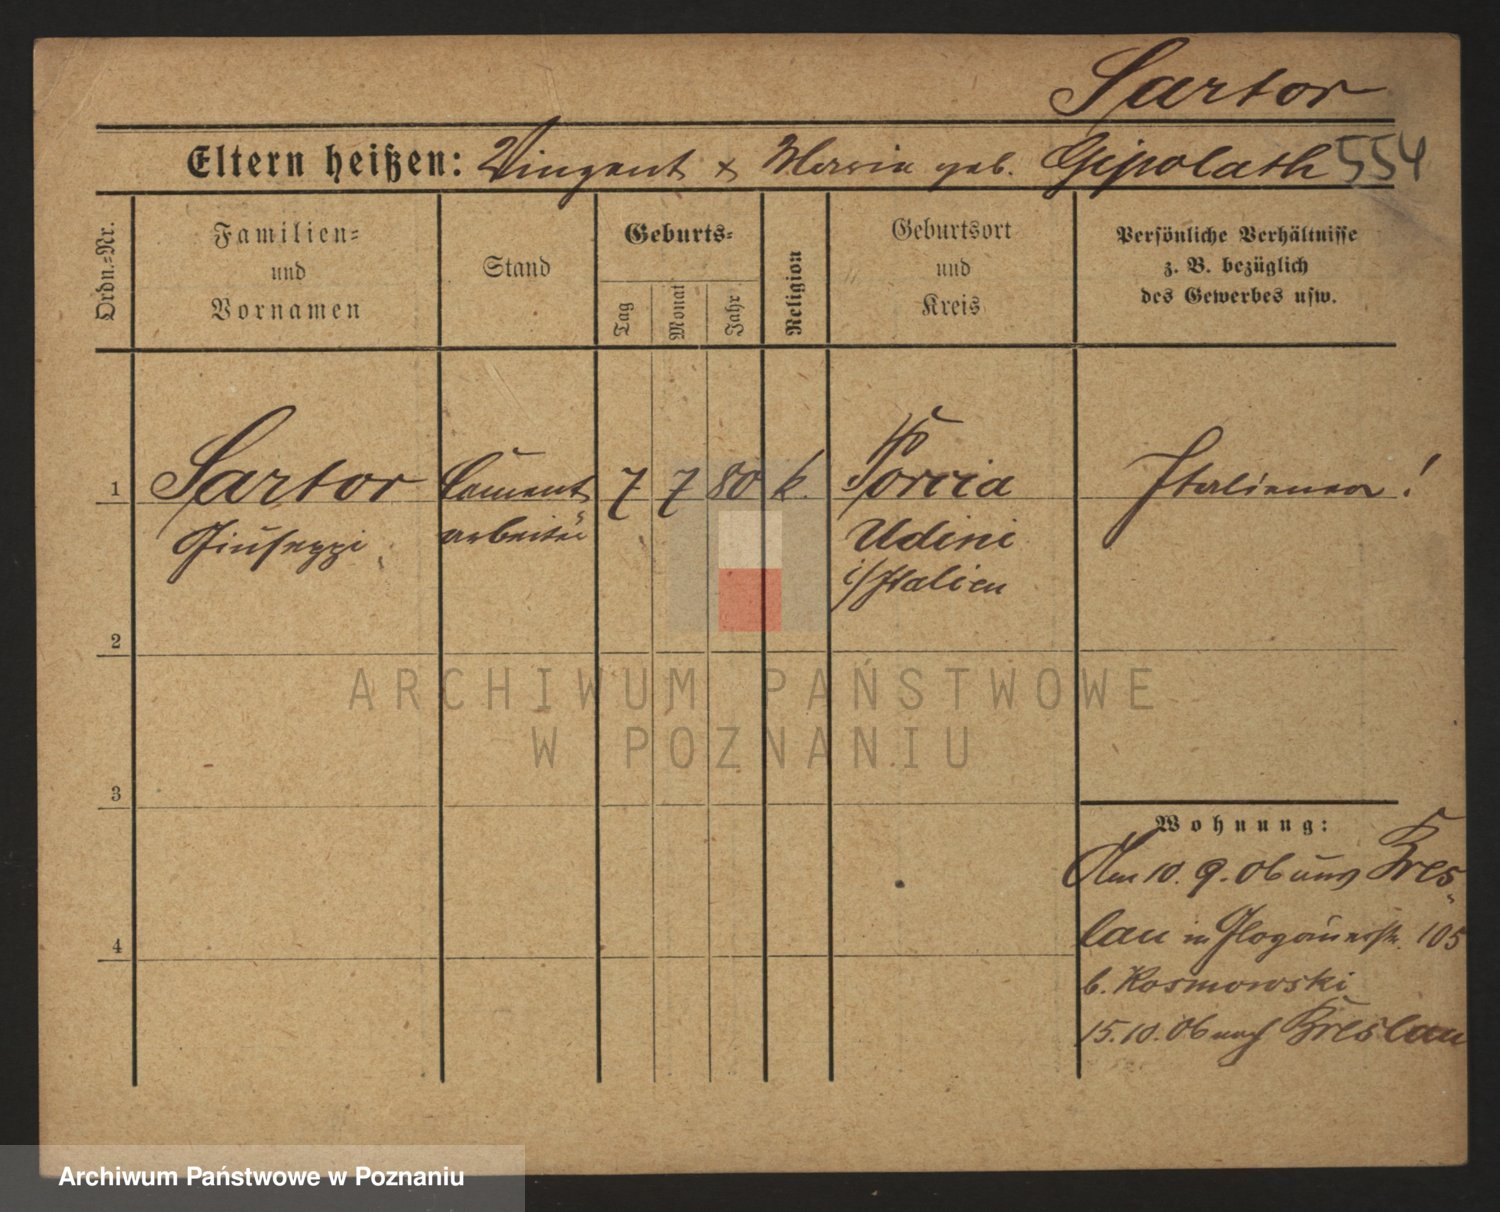 Sartor
Eltern heißen: Vinzent + Maria geb. Gipolath 554
Ordn.-Nr.
Familien- und Vornamen
Stand
Geburts-
Tag
Monat
Jahr
Religion
Geburtsort und Kreis
Persönliche Verhältnisse z. B. bezüglich des Gewerbes usw.
1 Sartor Cement 7 7 80 k. Porcia Italiener!
Giuseppi arbeiter Udini
i/Italien
2
3
4
Wohnung:
Am 10. 9. 06 aus Bres-
lau in Glogauerstr. 105
b. Kosmowski
15. 10. 06 nach Breslau
ARCHIWUM PAŃSTWOWE
W POZNANIU
Archiwum Państwowe w Poznaniu